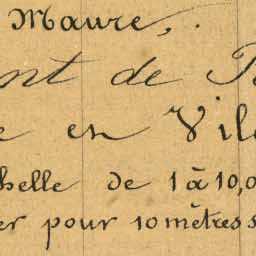 Maure,
nt de
e en Vil
helle de 1 à 10,0
er pour 10 mètres s